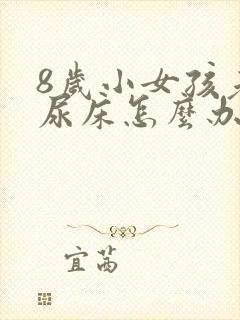 8歲小女孩
尿床怎麼办
宜茜